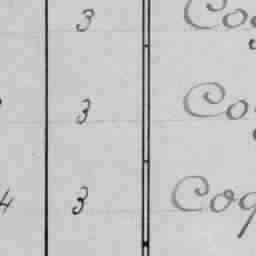 3 Co
3 Co
4 3 Coq